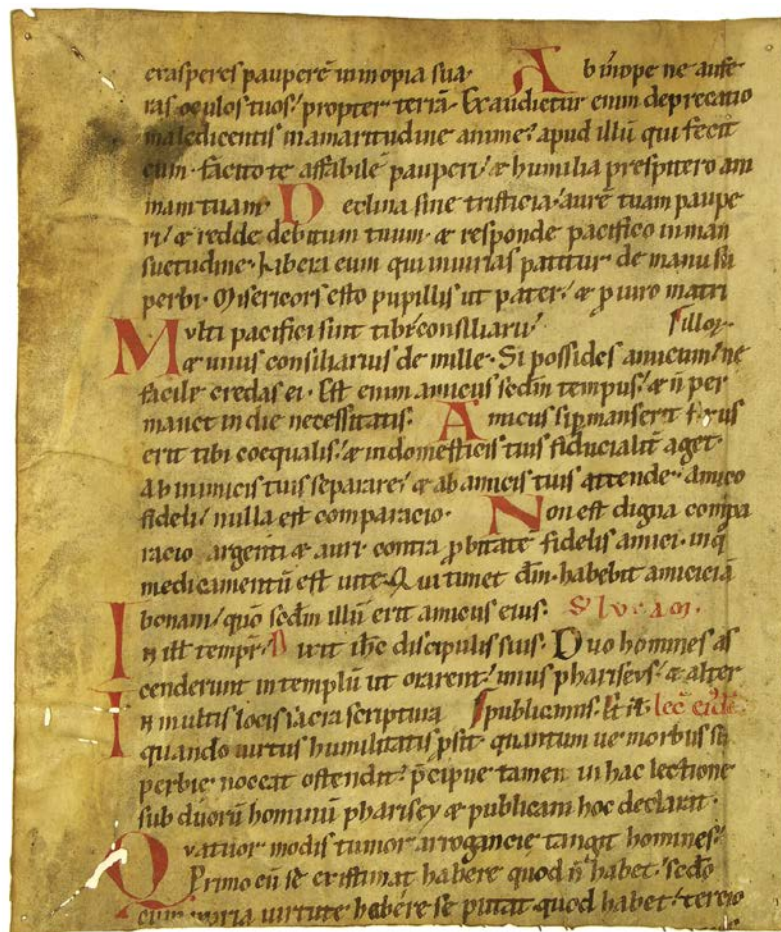 erasperes pauperē in inopia sua· Ab inope ne aufe
ras oculos tuos· propter ırā· Exaudietur enim deprecatio
maledicentis in amaritudine anime· apud illū qui fecit
eum· facito te affabilē pauperi· & humilia presbitero ani
mam tuam· Declina sine tristicia· aurē tuam paupe
ri· & redde debitum tuum· & responde pacifico in man
suetudine· Libera eum qui iniurias patitur de manu su
perbi· Misericors esto pupillis ut pater· & p uiro matri
Multi pacifici sint tibi· consiliarii illor·
& unus consiliarius de mille· Si possides amicum· ne
facile credas ei· Est enim amicus sedm tempus· & n̄ per
manet in die necessitatis· Amicus si pmanserit fixus
erit tibi coequalis· & in domesticis tuis fiducialit aget·
Ab inimicis tuis separare· & ab amicis tuis attende· amico
fideli· nulla est comparacio· Non est digna compa
racio argenti & auri contra pbitatē fidelis amici·
medicamentū est uite· Qui timet dm̄· habebit amiciciā
bonam· quō sedm illū erit amicus eius· S· lucam·
In ill tempr· Dixit ihc discipulis suis· Duo homines as
cenderunt in templū ut orarent· unus phariseus· & alter
In multis locis sacra scriptura publicanus· Et rl· lec̄ eiđe
quando uirtus humilitatis psit· quantum ue morbus su
perbie noceat ostendit· pcipue tamen in hac lectione
sub duorū hominū pharisey & publicani hoc declarat·
Quatuor modis tumor arrogancie tangit homines·
Primo cū se existimat habere quod n̄ habet· sedo
cum uirtute habere se putat quod habet· tercio